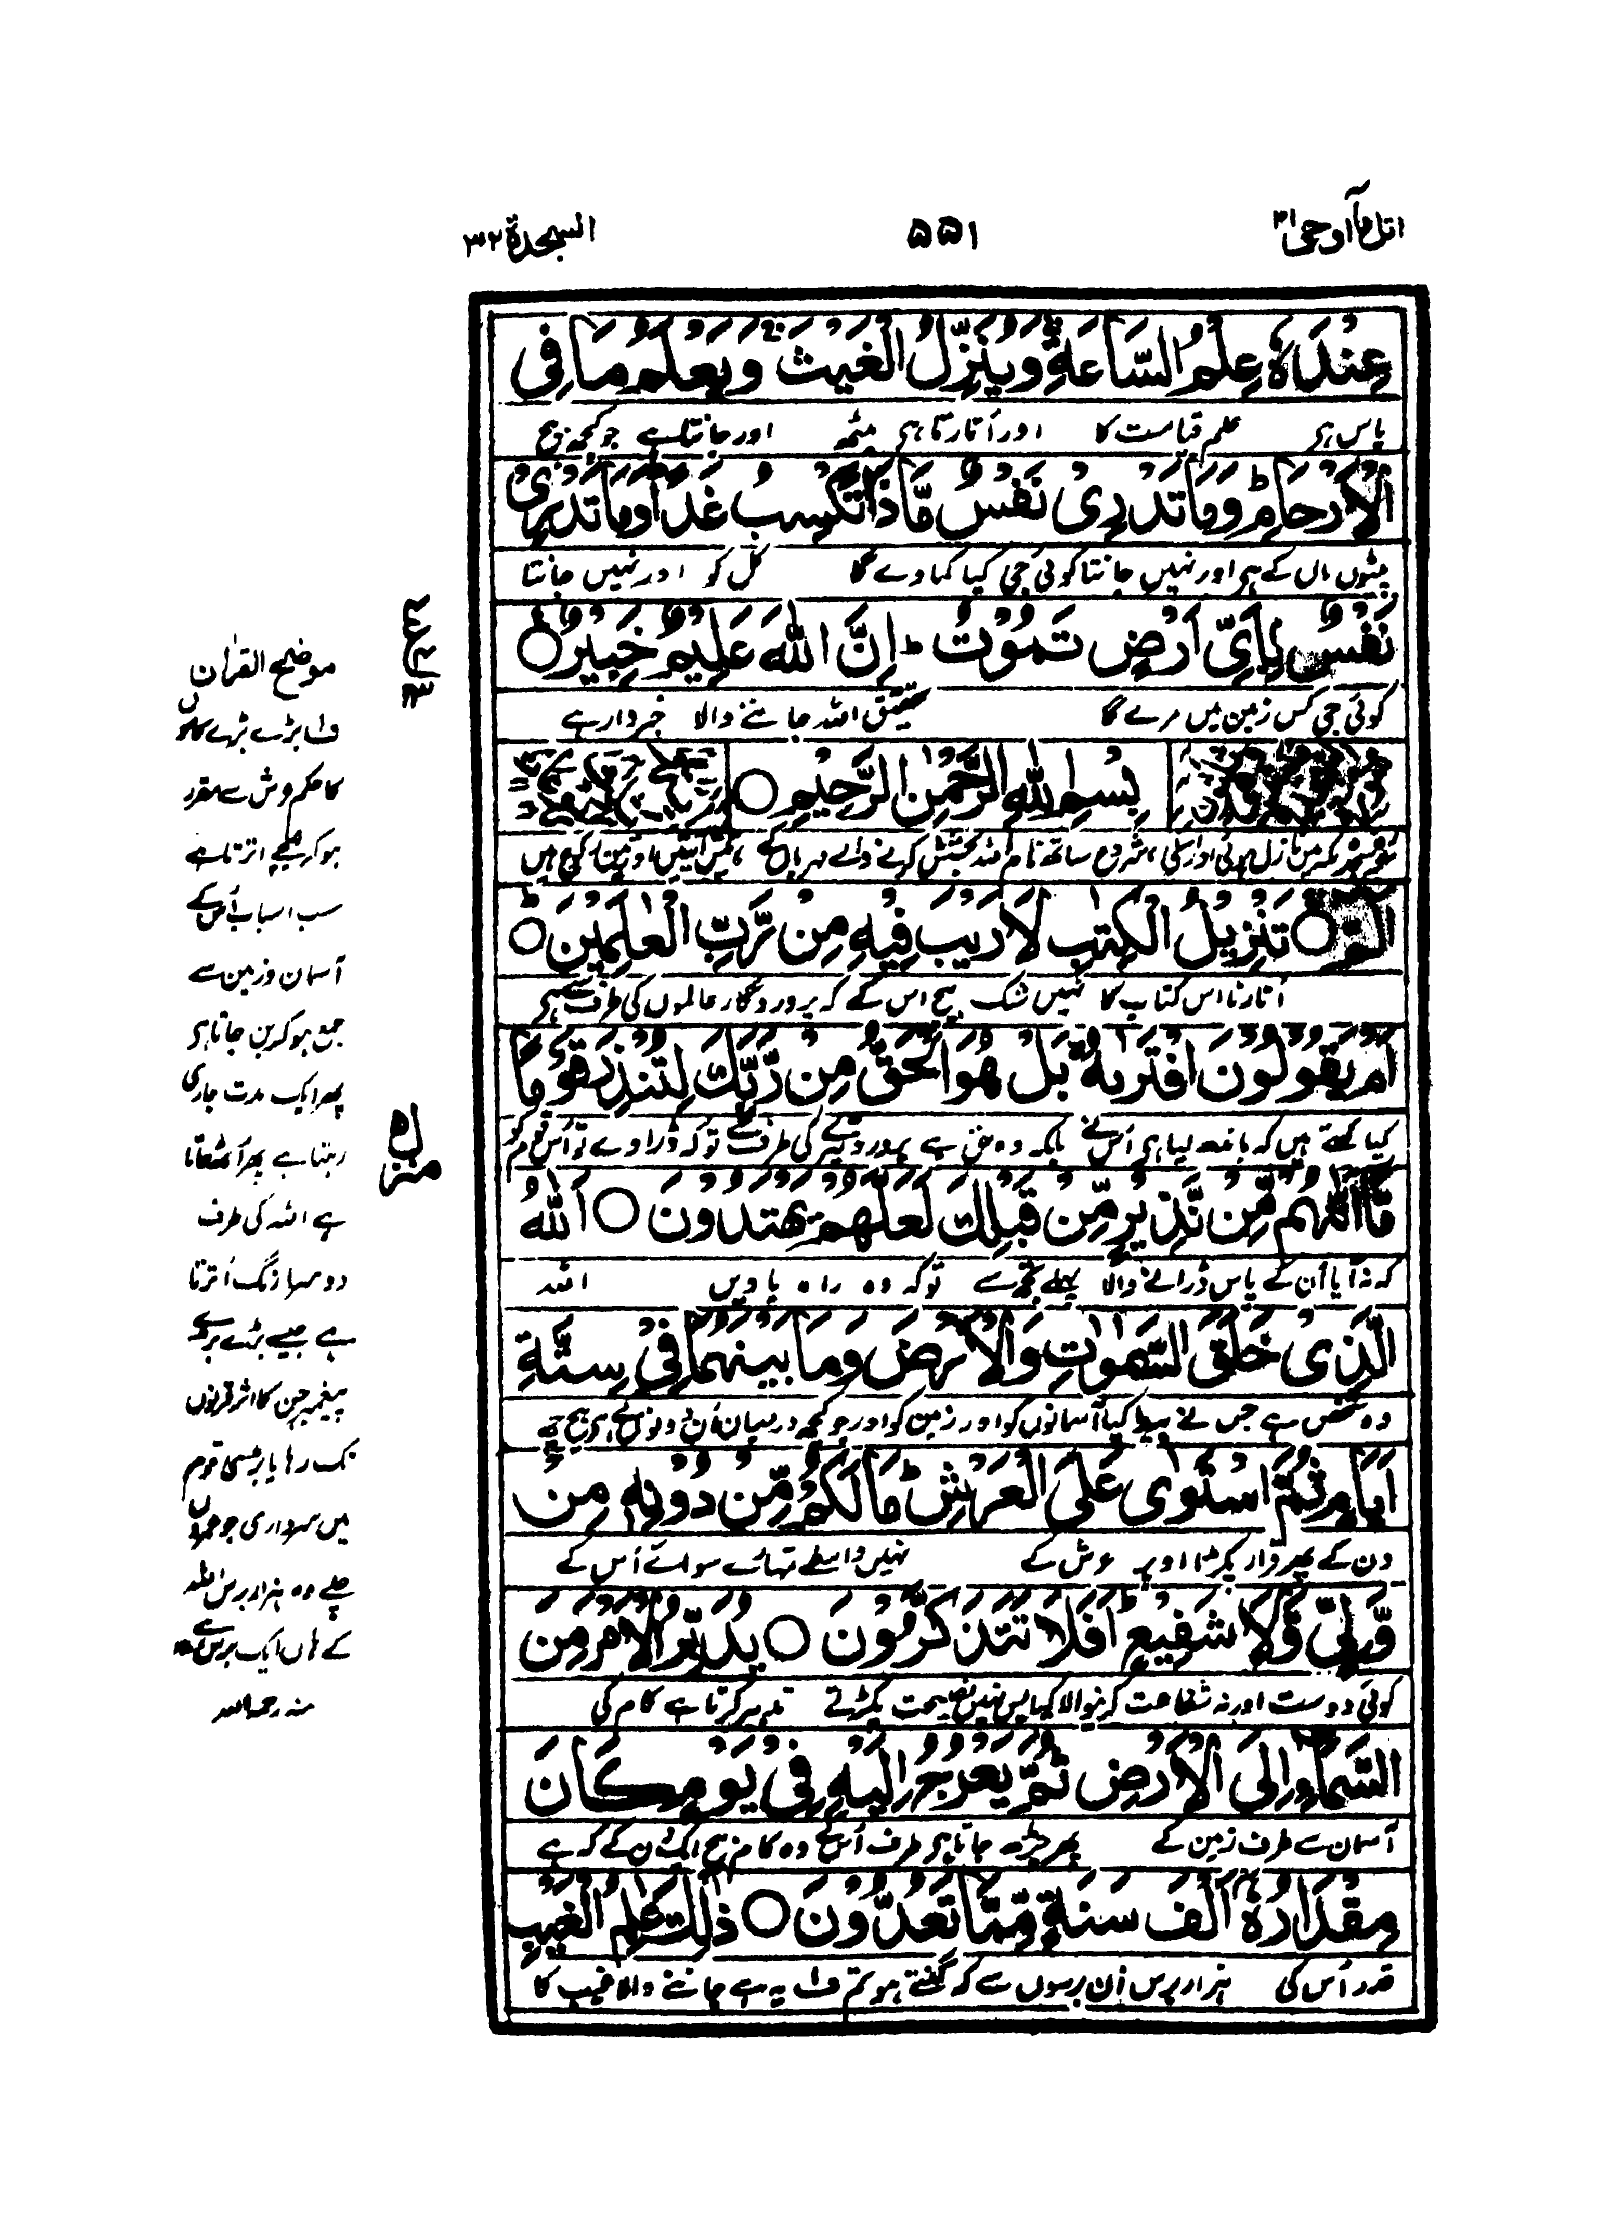 اتل مآ اوحی ۲۱
۵۵۱
السجدة ۳۲
عِنْدَهٗ عِلْمُ السَّاعَةِ وَيُنَزِّلُ الْغَيْثَ وَيَعْلَمُ مَا فِی
پاس ہی علم قیامت کا اور اُتارتا ہی مینھ اور جانتا ہے جو کچھ بیچ
الْاَرْحَامِ ؕ وَمَا تَدْرِیْ نَفْسٌ مَّاذَا تَكْسِبُ غَدًا وَمَا تَدْرِیْ
پیٹوں ماں کے ہی اور نہیں جانتا کوئی جی کیا کماوے گا کل کو اور نہیں جانتا
نَفْسٌۢ بِاَیِّ اَرْضٍ تَمُوْتُ ؕ اِنَّ اللّٰهَ عَلِيْمٌ خَبِيْرٌ ○
کوئی جی کس زمین میں مرے گا تحقیق اللہ جاننے والا خبردار ہے
بِسْمِ اللّٰهِ الرَّحْمٰنِ الرَّحِيْمِ ○
شروع ساتھ نام اللہ بخشش کرنے والے مہربان کے
الٓمّٓ ○ تَنْزِيْلُ الْكِتٰبِ لَا رَيْبَ فِيْهِ مِنْ رَّبِّ الْعٰلَمِيْنَ ○
اُتارنا اس کتاب کا نہیں شک بیچ اس کے کہ پروردگار عالموں کی طرف سے ہی
اَمْ يَقُوْلُوْنَ افْتَرٰىهُ ۚ بَلْ هُوَ الْحَقُّ مِنْ رَّبِّكَ لِتُنْذِرَ قَوْمًا
کیا کہتے ہیں کہ باندھ لیا ہی اُس نے بلکہ وہ حق ہے پروردگار تیرے کی طرف سے توکہ ڈراوے تو اُس قوم کو
مَّاۤ اَتٰىهُمْ مِّنْ نَّذِيْرٍ مِّنْ قَبْلِكَ لَعَلَّهُمْ يَهْتَدُوْنَ ○ اَللّٰهُ
کہ نہ آیا اُن کے پاس ڈرانے والا پہلے تجھ سے توکہ وہ راہ پاویں اللہ
الَّذِیْ خَلَقَ السَّمٰوٰتِ وَالْاَرْضَ وَمَا بَيْنَهُمَا فِیْ سِتَّةِ
وہ شخص ہے جس نے پیدا کیا آسمانوں کو اور زمین کو اور جو کچھ درمیان اُن دونوں کے ہی بیچ چھ
اَيَّامٍ ثُمَّ اسْتَوٰی عَلَی الْعَرْشِ ؕ مَا لَكُمْ مِّنْ دُوْنِهٖ مِنْ
دن کے پھر قرار پکڑا اوپر عرش کے نہیں واسطے تمہارے سوائے اُس کے
وَّلِیٍّ وَّلَا شَفِيْعٍ ؕ اَفَلَا تَتَذَكَّرُوْنَ ○ يُدَبِّرُ الْاَمْرَ مِنَ
کوئی دوست اور نہ شفاعت کرنیوالا کیا پس نہیں نصیحت پکڑتے تدبیر کرتا ہے کام کی
السَّمَآءِ اِلَی الْاَرْضِ ثُمَّ يَعْرُجُ اِلَيْهِ فِیْ يَوْمٍ كَانَ
آسمان سے طرف زمین کے پھر چڑھ جاتا ہی طرف اُس کے وہ کام بیچ ایک دن کے کہ ہے
مِقْدَارُهٗۤ اَلْفَ سَنَةٍ مِّمَّا تَعُدُّوْنَ ○ ذٰلِكَ عٰلِمُ الْغَيْبِ
قدر اُس کی ہزار برس اُن برسوں سے کہ گنتے ہو تم ف۱ یہ ہے جاننے والا غیب کا
منزل ۵
موضح القرآن
ف۱ بڑے بڑے کاموں
کا حکم عرش سے مقرر
ہوکر نیچے اترتا ہے
سب اسباب اُس کے
آسمان و زمین سے
جمع ہوکر بن جاتا ہی
پھر ایک مدت جاری
رہتا ہے پھر اُٹھ جاتا
ہے اللہ کی طرف
دوسرا رنگ اُترتا
ہے جیسے بڑے بڑے
پیغمبر جن کا اثر قرنوں
تک رہا یا بڑی قوم
میں سرداری جو عمروں
چلے وہ ہزار برس اللہ
کے ہاں ایک برس ہے ۱۲
منہ رحمہ اللہ